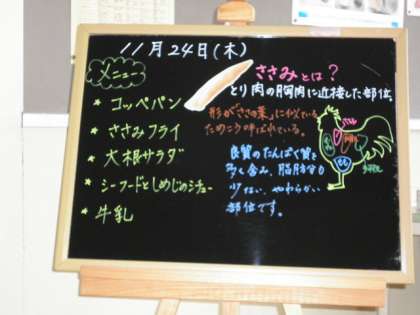 11月24日(木)
メニュー
* コッペパン
* ささみフライ
* 大根サラダ
* シーフードとしめじのシチュー
* 牛乳
ささみとは?
とり肉の胸肉に近接した部位。
形が"ささの葉"に似ている
ためこう呼ばれている。
良質のたんぱく質を
多く含み、脂肪分も
少ない、やわらかい
部位です。
もも